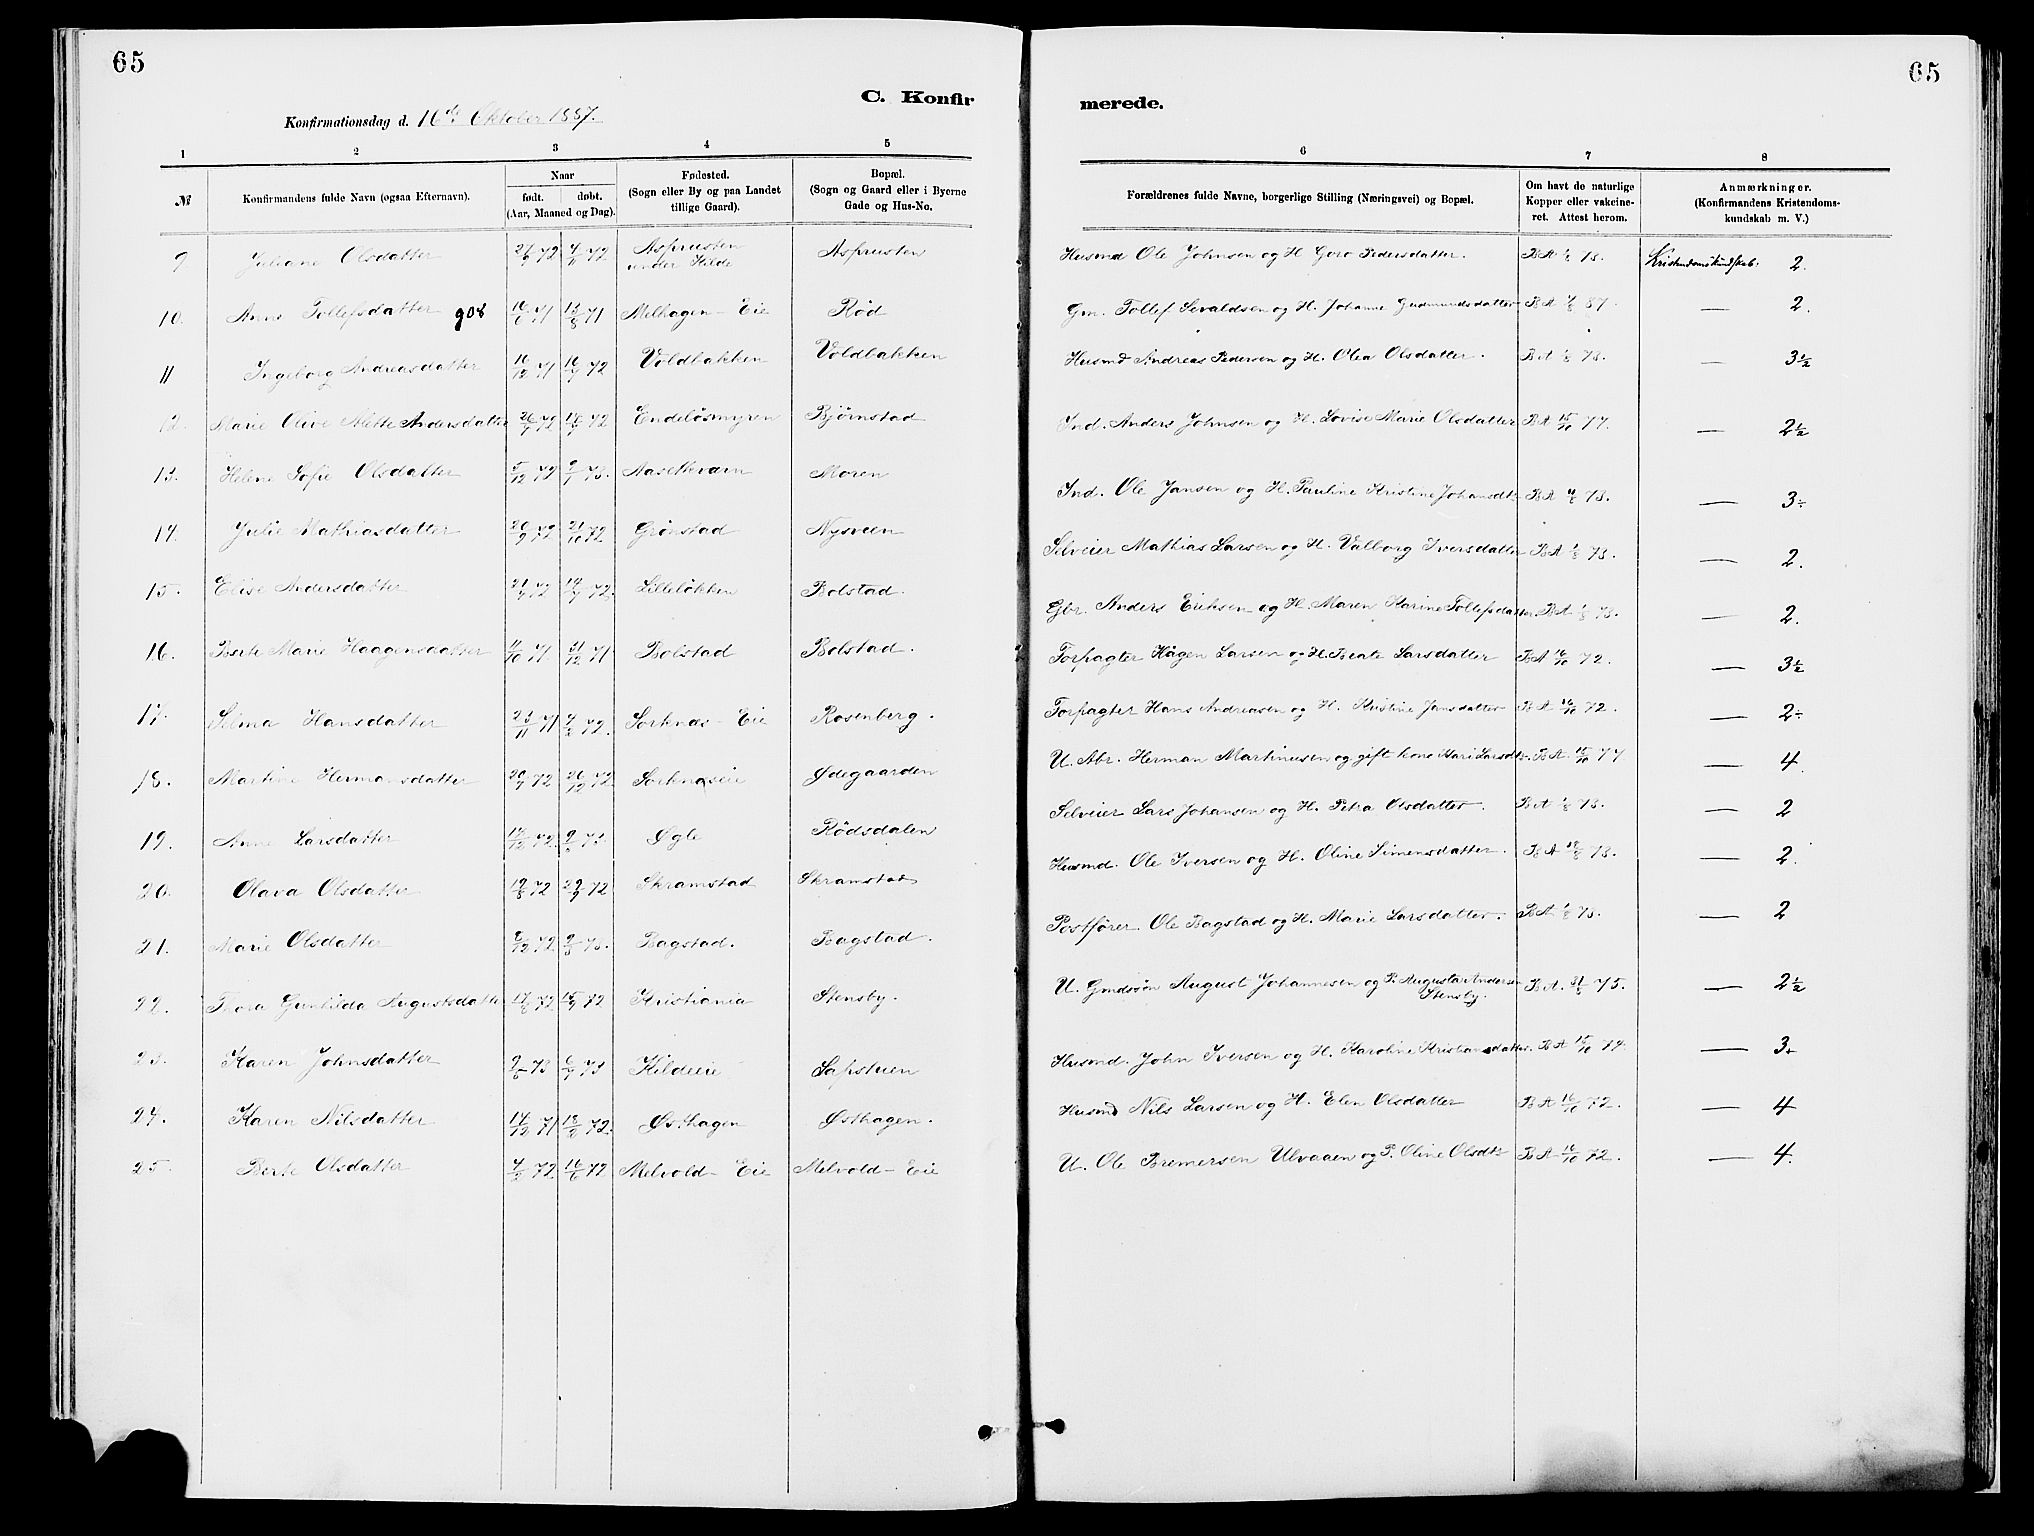 65
65
C. Konfir
merede.
Konfirmationsdag d. 16de Oktober 1887.
1 2 3 4 5 6 7 8
№ Konfirmandens fulde Navn (ogsaa Efternavn). Naar født. døbt. (Aar, Maaned og Dag). Fødested. (Sogn eller By og paa Landet tillige Gaard). Bopæl. (Sogn og Gaard eller i Byerne Gade og Hus-No. Forældrenes fulde Navne, borgerlige Stilling (Næringsvei) og Bopæl. Om havt de naturlige Kopper eller vakcineret. Attest herom. Anmærkninger. (Konfirmandens Kristendomskundskab m. V.)
9 Juliane Olsdatter 72 4/11 72 Asprusten under Hilde Asprusten Husmd Ole Johnsen og H. Goro Pedersdatter. B A 73. Kristendomskundskab: 2.
10. Anne Tollefsdatter 908 16/6 71 13/8 71 Melhagen - Eie Röd Gm. Tollef Sevaldsen og H. Johanne Gudmundsdatter B A 87. — 2.
11 Ingeborg Andreasdatter 16/12 71 72 Voldbakken Voldbakken Husmd Andreas Pedersen og H. Olea Olsdatter. B A 73. — 3½
12. Marie Olive Alette Andersdatter 72 72 Endelösmyren Bjørnstad Ind. Anders Johnsen og H. Lovise Marie Olsdatter B A 15/10 77. — 2½
13. Helene Sofie Olsdatter 5/12 72 73. Aasetkværn Moren Ind. Ole Jansen og H. Pauline Kristine Johansdtr B A 73. — 3÷
14. Julie Mathiasdatter 20/9 72 21/10 72 Grönstad Nysveen Selveier Mathias Larsen og H. Valborg Iversdatter B A 73. — 2.
15. Elise Andersdatter 72 72. Lillelökken Bolstad. Gbr. Anders Eriksen og H. Maren Karine Tollefsdatter. B A 73. — 2.
16. Berte Marie Haagensdatter 11/10 71. 31/12 71 Bolstad Bolstad. Forpagter Hågen Larsen og H. Beate Larsdatter B A 16/10 72. — 3½
17. Selma Hansdatter 23/11 71 4/2 72. Sorknæs - Eie Rosenberg. Forpagter Hans Andreasen og H. Kristine Jansdatter B A 16/10 72. — 2÷
18. Martine Hermansdatter 72 26/12 72 Sorknæseie Ødegaarden U. Abr. Herman Martinusen og gift kone Kari Larsdtr. B A 15/10 77 — 4.
19. Anne Larsdatter 72. 73. Øgle Rödsdalen Selveier Lars Johansen og H. Petra Olsdatter. B A 73. — 2
20. Olava Olsdatter 19/8 72 29/9 72 Skramstad Skramstad Husmd. Ole Iversen og H. Oline Simensdatter. B A 73. — 2.
21. Marie Olsdatter 72 9/3 73. Bagstad. Bagstad. Postfører Ole Bagstad og H. Marie Larsdatter. B A 73. — 2
22. Tora Gunhilda Augustsdatter 72 72 Kristiania Stensby. U. Gmdsön August Johannesen og P. Augusta Andersen Stensby. B A. 75. — 2½
23. Karen Johnsdatter 73 73 Kildeeie Sapstuen Husmd. John Iversen og H. Karoline Kristiansdatter. B A 15/10 — 3+
24. Karen Nilsdatter 14/12 71 18/2 72. Østhagen Østhagen. Husmd Nils Larsen og H. Elen Olsdatter B A 16/10 72. — 4
25. Berte Olsdatter 72. 16/6 72 Melvold - Eie Melvold - Eie U. Ole Bremersen Ulvaaen og P. Oline Olsdtr B A 16/10 72. — 4.